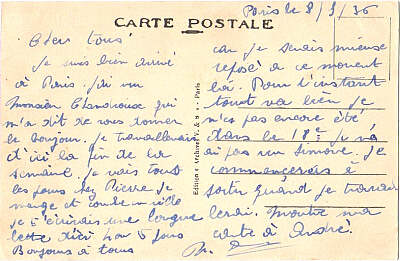 Paris le 8/9/36
CARTE POSTALE
Chers tous!
Je suis bien arrivé
à Paris. J'ai vu
Monsieur qui
m'a dit de vous donner
le bonjour. Je travaillerais
d'ici la fin de la
semaine. Je vais tout
les jours chez Pierre je
mange et en ville
je t'écrirais une longue
lettre d'ici 4 ou 5 jours
Bonjours à tous
car je serais mieux
reposé à ce moment
là. Pour l'instant
tout va bien je
n'ai pas encore été
dans le 18e je n'
ai pas un Je
commencerais à
sortir quand je travail
lerai. Montre ma
carte à André.
Edition
Paris